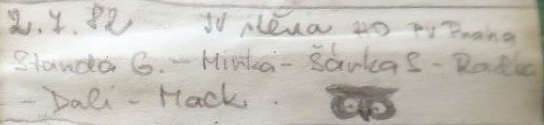 2.7.82 TJ Měna HO PV Praha
Standa G. - Mirka - Šárka S - Radka
- Dali - Mack.